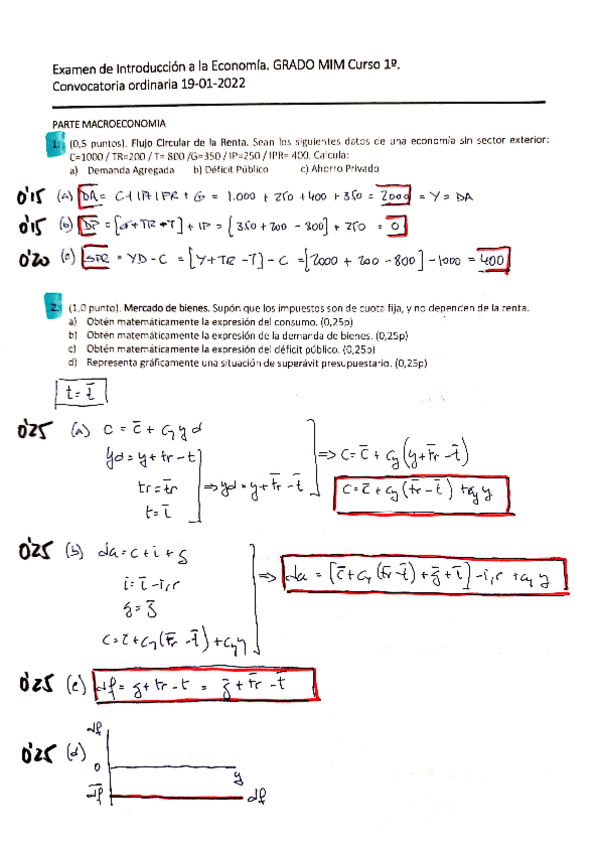 Examen de Introducción a la Economía. GRADO MIM Curso 1º.
Convocatoria ordinaria 19-01-2022
PARTE MACROECONOMIA
1. (0,5 puntos). Flujo Circular de la Renta. Sean los siguientes datos de una economía sin sector exterior:
C=1000 / TR=200 / T= 800 /G=350 / IP=250 / IPR= 400. Calcula:
a) Demanda Agregada b) Déficit Público c) Ahorro Privado
0'15 (a) DA = C+IP+IPR+G = 1.000 + 250 +400 + 350 = 2000 = Y = DA
0'15 (b) DP = [G+TR-T] + IP = [350 + 200 - 800] + 250 = 0
0'20 (c) SPR = YD - C = [Y+TR-T] - C = [2000 + 200 - 800] - 1000 = 400
2. (1,0 punto). Mercado de bienes. Supón que los impuestos son de cuota fija, y no dependen de la renta.
a) Obtén matemáticamente la expresión del consumo. (0,25p)
b) Obtén matemáticamente la expresión de la demanda de bienes. (0,25p)
c) Obtén matemáticamente la expresión del déficit público. (0,25p)
d) Representa gráficamente una situación de superávit presupuestario. (0,25p)
t = t̄
0'25 (a) c = c̄ + cy yd
yd = y + tr - t
tr = t̄r
t = t̄
⇒ yd = y + t̄r - t̄
⇒ c = c̄ + cy (y + t̄r - t̄)
c = c̄ + cy (t̄r - t̄) + cy y
0'25 (b) da = c + i + g
i = ī - i,r
g = ḡ
c = c̄ + cy (t̄r - t̄) + cy y
⇒ da = [c̄ + cy (t̄r - t̄) + ḡ + ī] - i,r + cy y
0'25 (c) df = g + tr - t = ḡ + t̄r - t̄
0'25 (d) df
0
y
d̄f
df